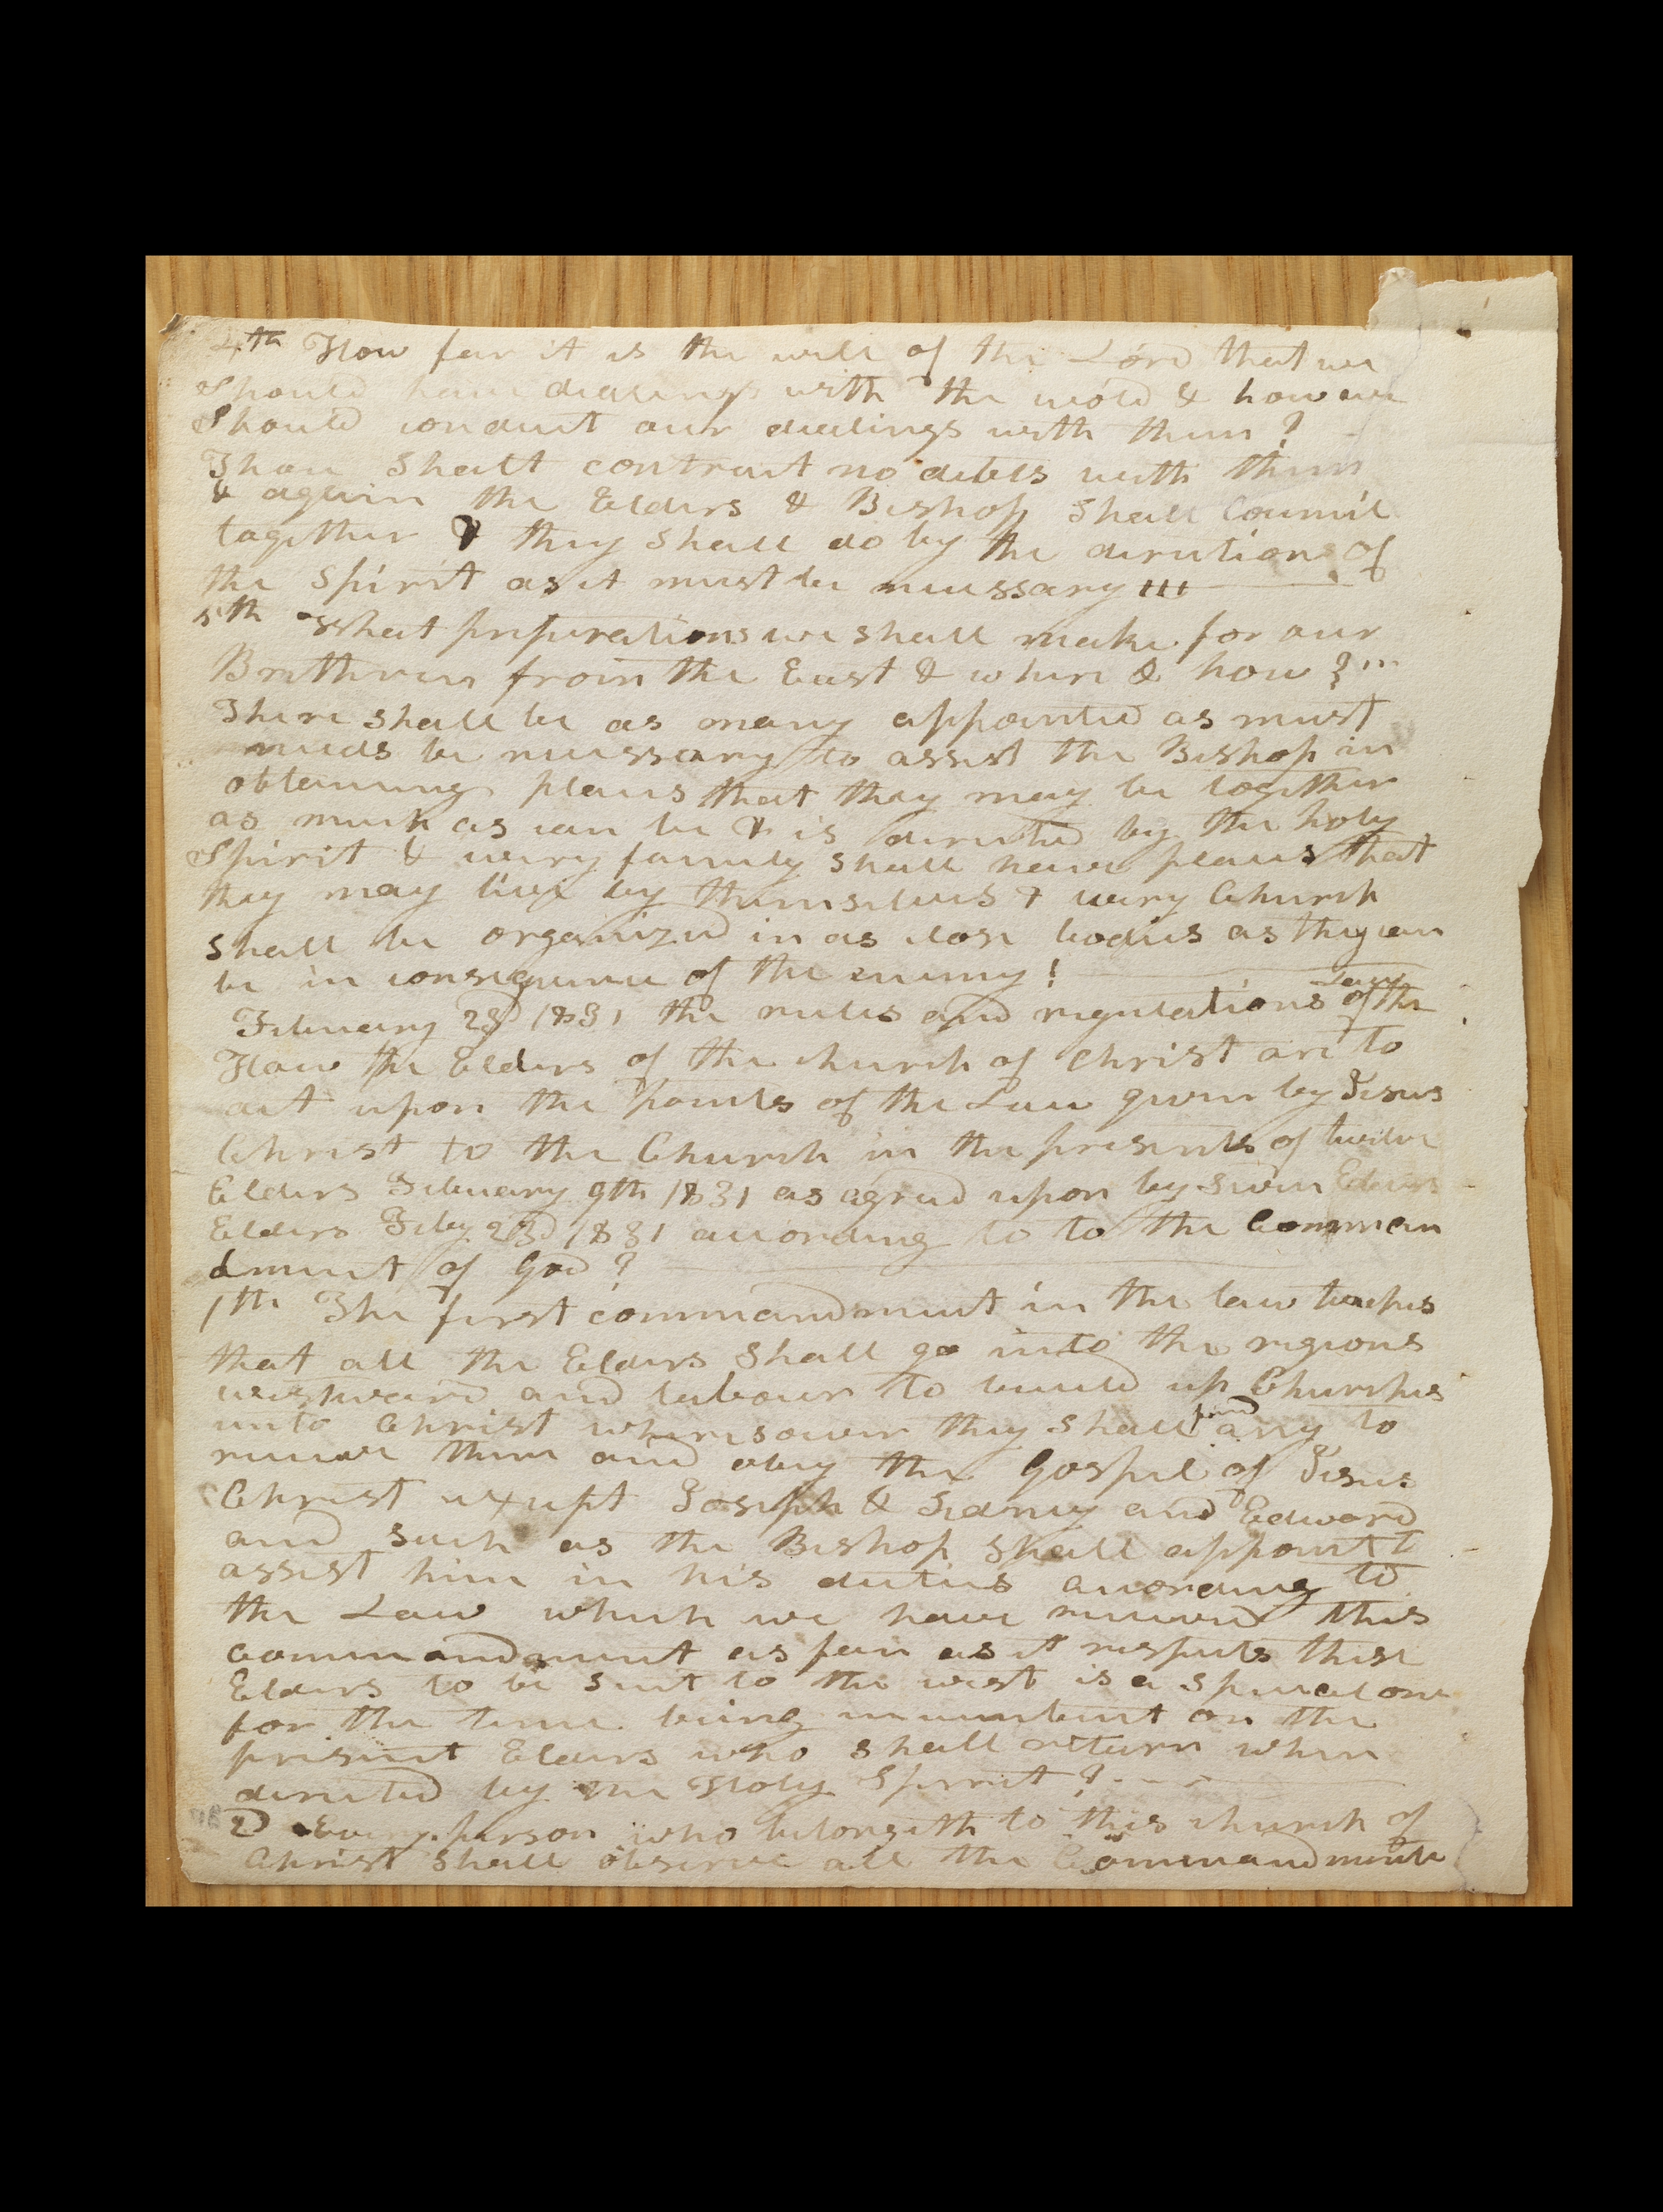 4th How far it is the will of the Lord that we
Should have dealings with the wold & how we
Should conduct our dealings with them?
Thou Shalt contract no debts with them
& again the Elders & Bishop Shall Council
together & they Shall do by the direction of
the Spirit as it must be necessary !!!
5th What preparations we shall make for our
Brethren from the East & where & how?
There shall be as many appointed as must
needs be necessary to assist the Bishop in
obtaining places that they may be together
as much as can be & is directed by the holy
Spirit & every family shall have places that
they may live by themselves & every Church
shall be organized in as close bodies as they can
be in consequence of the enemy!
February 23d 1831 the rules and regulations of the Law
How the Elders of the church of Christ are to
act upon the points of the Law given by Jesus
Christ to the Church in the presents of twelve
Elders February 9th 1831 as agreed upon by Seven Elders
Elders Feby 23d 1831 according to to the Comman
dment of God?
1th The first commandment in the law teaches
that all the Elders Shall go into the regions
westward and labour to build up Churches
unto Christ wheresoever they Shall find any to
receive them and obey the Gospel of Jesus
Christ except Joseph & Sidney and Edward
and such as the Bishop Shall appoint t
assist him in his duties according to
the Law which we have received this
commandment as far as it respects these
Elders to be Sent to the west is a Special one
for the time being incumbent on the
present Elders who shall return when
directed by the Holy Spirit?
2d Every person who belongeth to this church of
Christ Shall observe all the Commandments